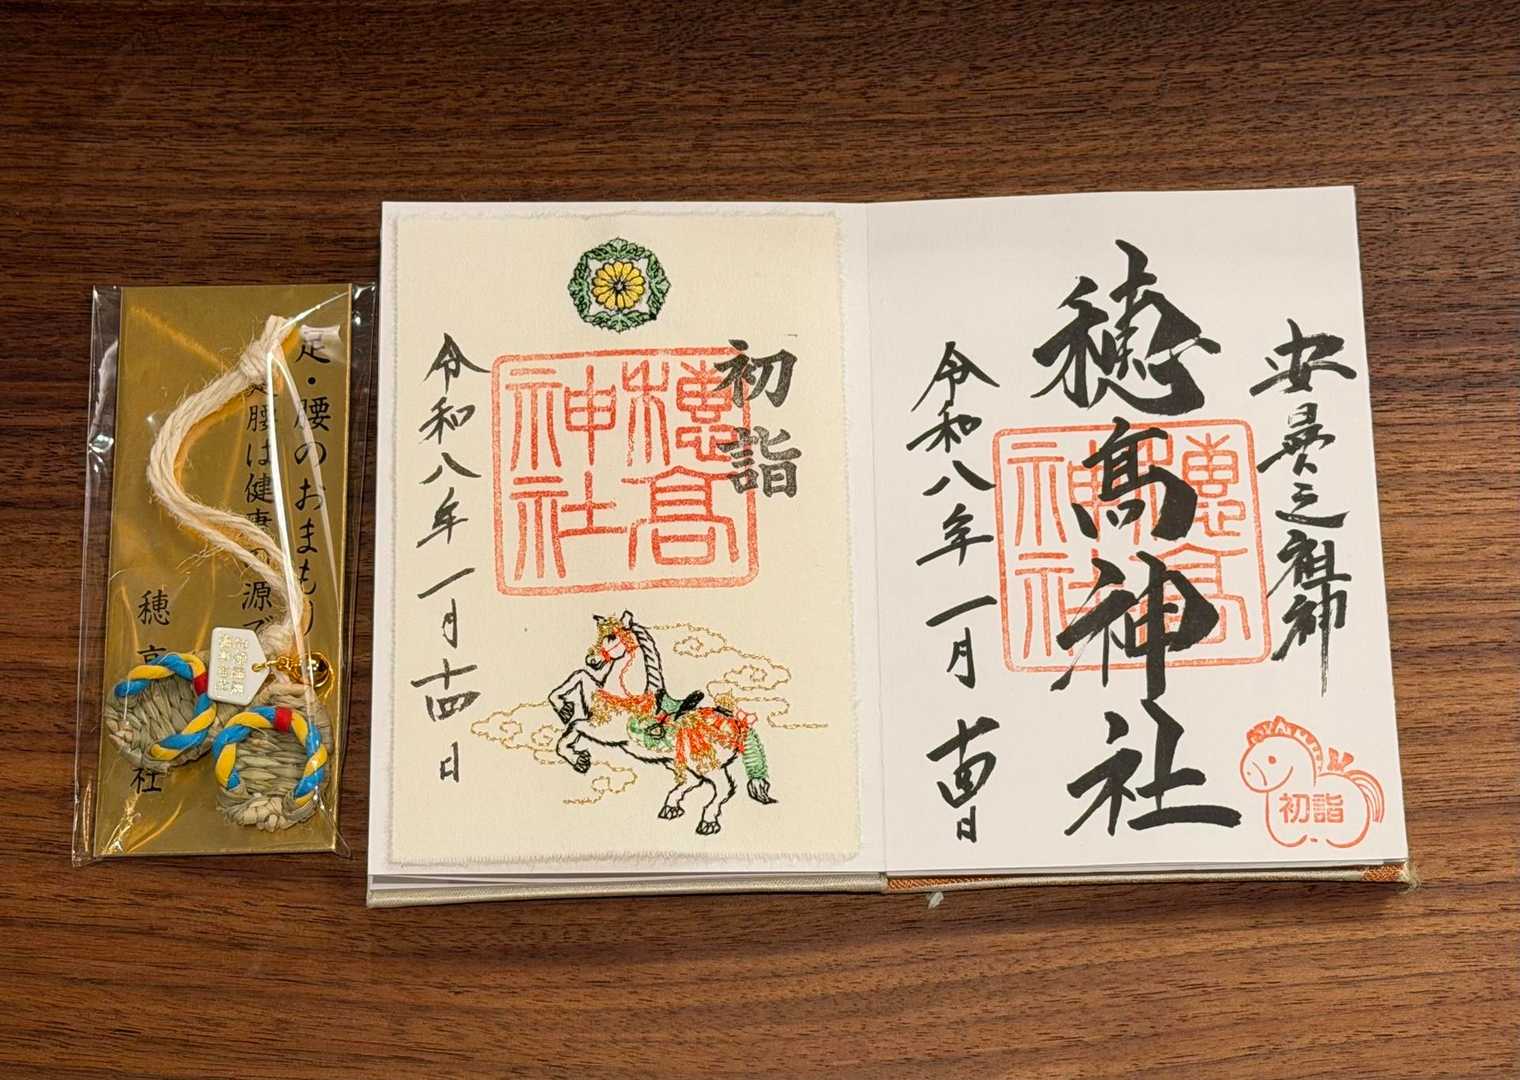 足・腰のおまもり
足腰は健康の源で
穂高
社
初詣
穂高
神社
令和八年一月十四日
安曇之祖神
穂髙神社
穂高
神社
令和八年一月十四日
初詣